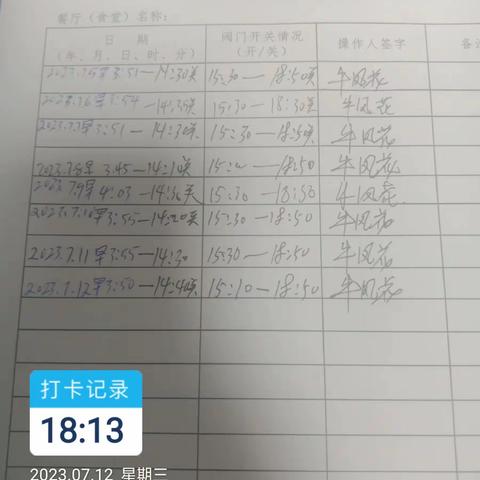 餐厅（食堂）名称：
日 期 阀门开关情况 操作人签字 备
（年、月、日、时、分） （开/关）
2023.7.5早3:51—14:30关 15:30—18:50关 牛风花
2023.7.6早3:54—14:35关 15:30—18:30关 牛风花
2023.7.7早3:51—14:30关 15:30—18:50关 牛风花
2023.7.8早3:45—14:10关 —18:50 牛风花
2023.7.9早4:03—14:30关 15:30—18:30 牛风花
2023.7.10早3:55—14:20关 15:30—18:50 牛风花
2023.7.11早3:55—14:30 15:30—18:50 牛风花
2023.7.12早3:50—14:40关 15:10—18:50 牛风花
打卡记录
18:13
2023.07.12 星期三